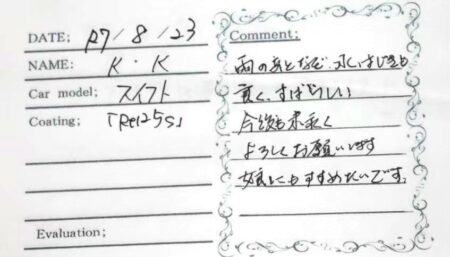 DATE; R7/8/23
NAME; K・K
Car model; スイフト
Coating; 「Re125s」
Evaluation;
Comment;
雨のあとなど、水はじきも
良く、すばらしい
今後も末永く
よろしくお願いします
娘にもすすめたいです。